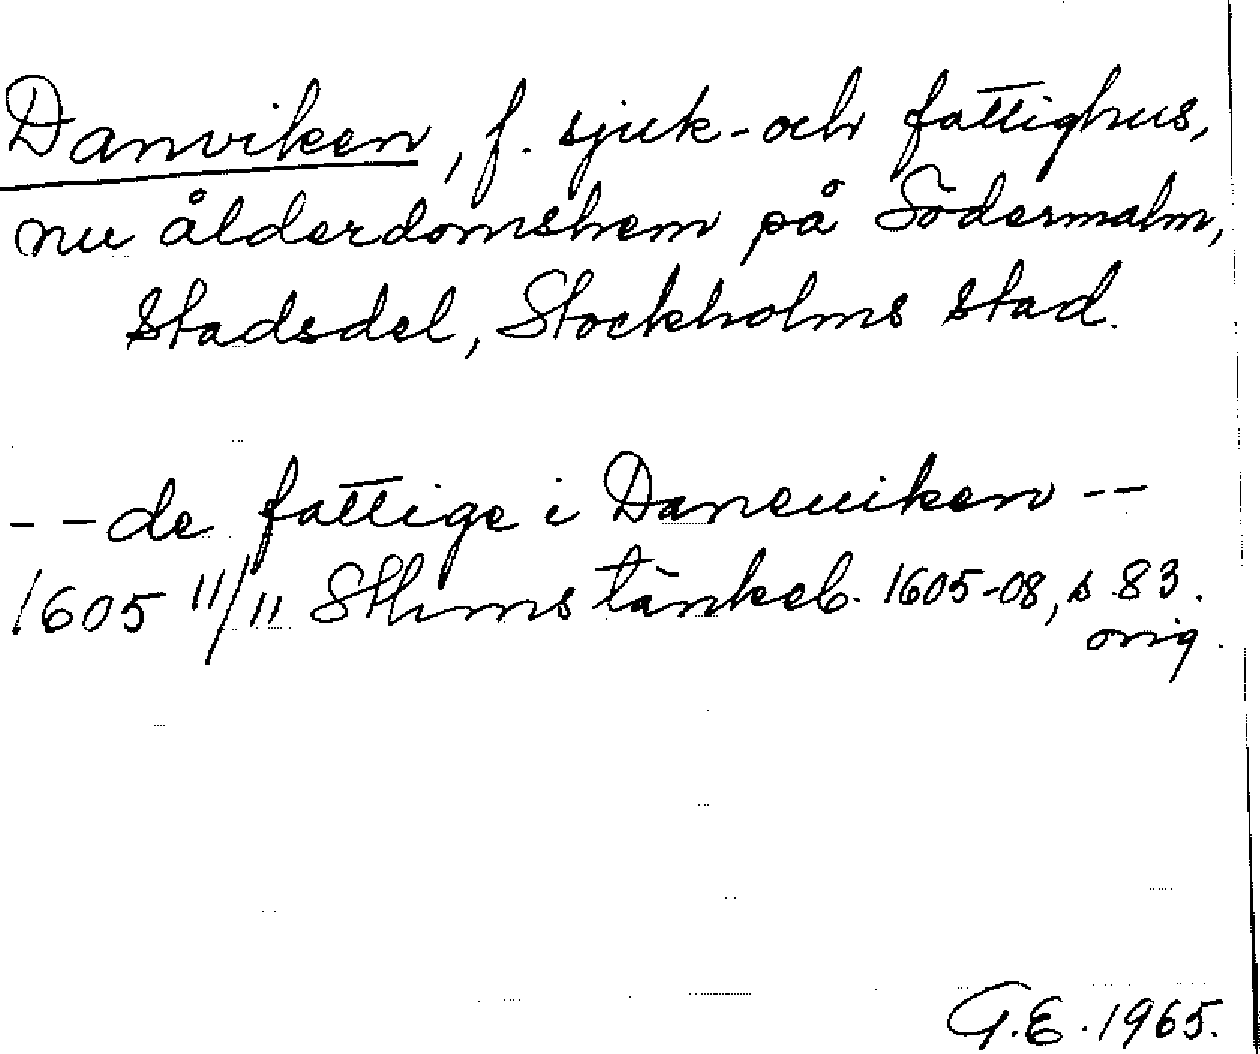 Danviken, f. sjuk- och fattighus,
nu ålderdomshem på Södermalm,
stadsdel, Stockholms stad.
- - de fattige i Daneuiken - -
1605 11/11 Sthms tänkeb. 1605-08, s 83.
orig.
G.E. 1965.